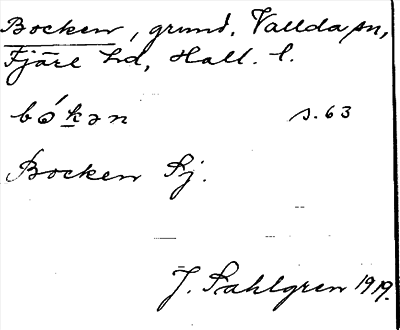 Bocken, grund, Vallda sn,
Fjäre hd, Hall. l.
bókən s. 63
Bocken Sj.
J. Sahlgren 1919.